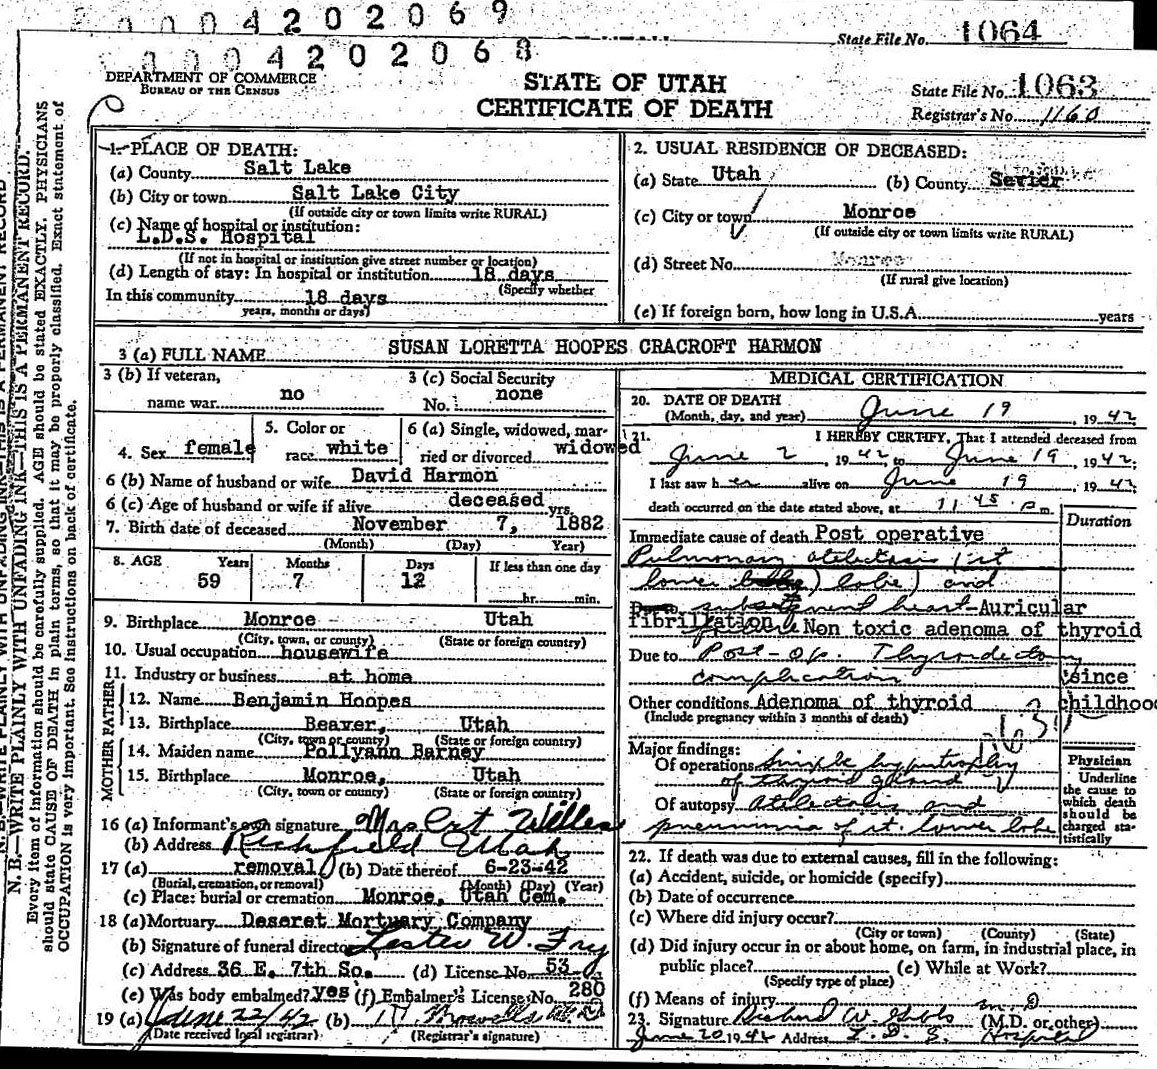 0004202069
State File No. 1064
0004202068
DEPARTMENT OF COMMERCE
BUREAU OF THE CENSUS
STATE OF UTAH
CERTIFICATE OF DEATH
State File No. 1063
Registrar's No. 1160
1. PLACE OF DEATH:
(a) County Salt Lake
(b) City or town Salt Lake City
(If outside city or town limits write RURAL)
(c) Name of hospital or institution:
L.D.S. Hospital
(If not in hospital or institution give street number or location)
(d) Length of stay: In hospital or institution 18 days
(Specify whether
In this community 18 days
years, months or days)
2. USUAL RESIDENCE OF DECEASED:
(a) State Utah (b) County Sevier
(c) City or town Monroe
(If outside city or town limits write RURAL)
(d) Street No. Monroe
(If rural give location)
(e) If foreign born, how long in U.S.A. years
3 (a) FULL NAME SUSAN LORETTA HOOPES CRACROFT HARMON
3 (b) If veteran,
name war no
3 (c) Social Security
No. none
4. Sex female
5. Color or
race white
6 (a) Single, widowed, mar-
ried or divorced widowed
6 (b) Name of husband or wife David Harmon
6 (c) Age of husband or wife if alive deceased yrs.
7. Birth date of deceased November 7, 1882
(Month) (Day) Year)
8. AGE Years Months Days If less than one day
59 7 12 hr. min.
9. Birthplace Monroe Utah
(City, town, or county) (State or foreign country)
10. Usual occupation housewife
11. Industry or business at home
FATHER
12. Name Benjamin Hoopes
13. Birthplace Beaver, Utah
(City, town or county) (State or foreign country)
MOTHER
14. Maiden name Pollyann Barney
15. Birthplace Monroe, Utah
(City, town or county) (State or foreign country)
16 (a) Informant's own signature Mrs
(b) Address Richfield Utah
17 (a) removal (b) Date thereof 6-23-42
(Burial, cremation, or removal) (Month) (Day) (Year)
(c) Place: burial or cremation Monroe, Utah Cem.
18 (a) Mortuary Deseret Mortuary Company
(b) Signature of funeral director Lester W. Fry
(c) Address 36 E. 7th So. (d) License No. 53
(e) Was body embalmed? yes (f) Embalmer's License No. 280
19 (a) June 22/42 (b)
(Date received local registrar) (Registrar's signature)
MEDICAL CERTIFICATION
20. DATE OF DEATH
(Month, day, and year) June 19 1942
21. I HEREBY CERTIFY, That I attended deceased from
June 2, 1942, to June 19, 1942;
I last saw her alive on June 19, 1942;
death occurred on the date stated above, at 11 45 Pm.
Duration
Immediate cause of death Post operative
Pulmonary atelectasis (rt
lower lobe) and
subsequent heart-Auricular
fibrillation failure Non toxic adenoma of thyroid
Due to Post-Op. Thyroidectomy
complication since
Other conditions Adenoma of thyroid childhood
(Include pregnancy within 3 months of death)
Major findings:
Of operations Simple hypertrophy
of thyroid gland
Of autopsy atelectasis and
pneumonia of rt. lower lobe
Physician
Underline
the cause to
which death
should be
charged sta-
tistically
22. If death was due to external causes, fill in the following:
(a) Accident, suicide, or homicide (specify)
(b) Date of occurrence
(c) Where did injury occur?
(City or town) (County) (State)
(d) Did injury occur in or about home, on farm, in industrial place, in
public place? (e) While at Work?
(Specify type of place)
(f) Means of injury
23. Signature Richard W. Gibbs M D
(M.D. or other)
June 20 1942 Address L. D. S. Hospital
N. B.—WRITE PLAINLY WITH UNFADING INK—THIS IS A PERMANENT RECORD.
Every item of information should be carefully supplied. AGE should be stated EXACTLY. PHYSICIANS
should state CAUSE OF DEATH in plain terms, so that it may be properly classified. Exact statement of
OCCUPATION is very important. See instructions on back of certificate.